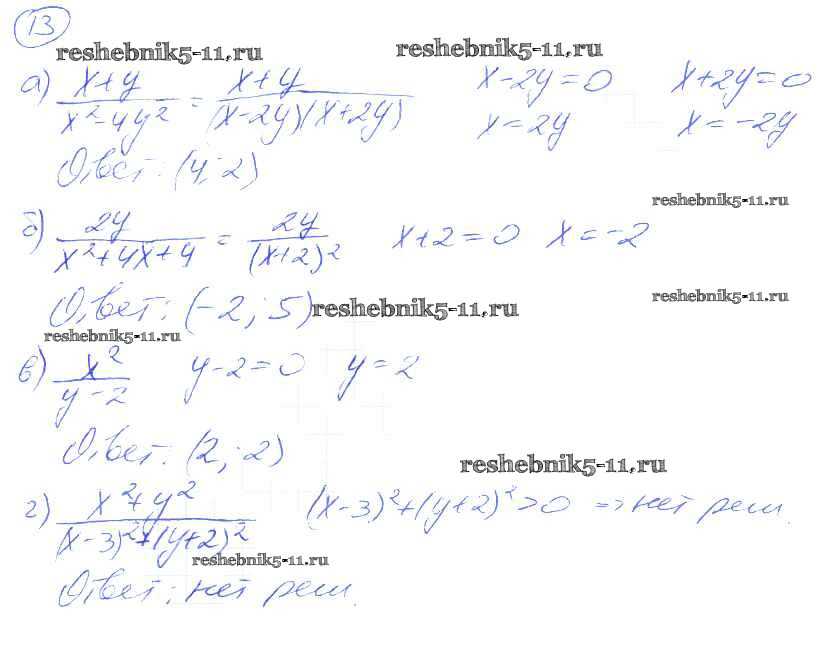 13
reshebnik5-11.ru reshebnik5-11.ru
а) (x+y)/(x²-4y²) = (x+y)/((x-2y)(x+2y)) x-2y=0 x+2y=0
x=2y x=-2y
Ответ: (4; 2)
reshebnik5-11.ru
б) 2y/(x²+4x+4) = 2y/(x+2)² x+2=0 x=-2
Ответ: (-2; 5) reshebnik5-11.ru reshebnik5-11.ru
reshebnik5-11.ru
в) x²/(y-2) y-2=0 y=2
Ответ: (2; 2)
reshebnik5-11.ru
г) (x²+y²)/((x-3)²+(y+2)²) (x-3)²+(y+2)²>0 => нет реш.
reshebnik5-11.ru
Ответ: нет реш.